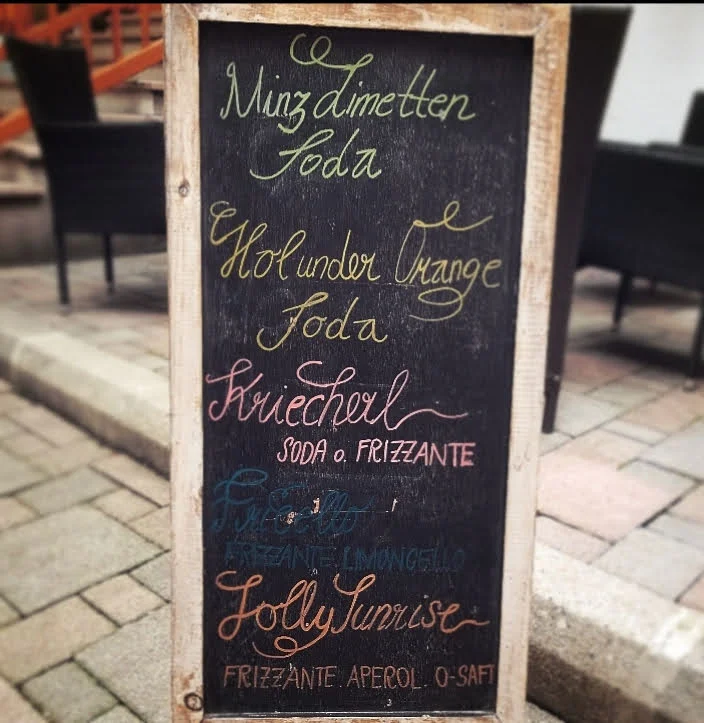 Minzdimetten
Soda
Holunder Orange
Soda
Kriecherl
SODA o. FRIZZANTE
FRIZZANTE. LIMONCELLO
Jolly Sunrise
FRIZZANTE. APEROL. O-SAFT